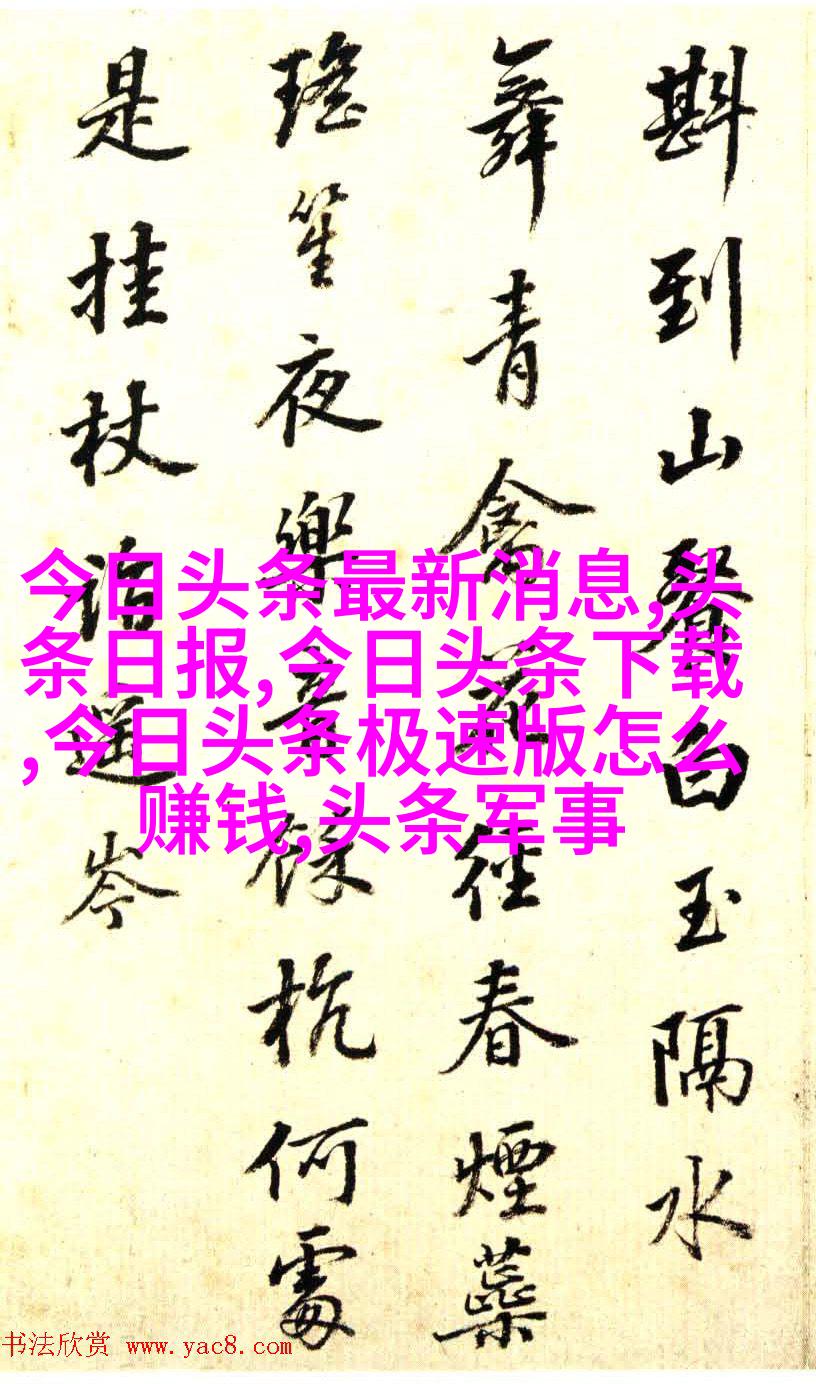 斟到山白玉隔水
舞青禽徑春煙蘂
瑤笙夜樂餘杭何處
是挂杖詣遥岑
今日头条最新消息,头
条日报,今日头条下载
,今日头条极速版怎么
赚钱,头条军事
书法欣赏 www.yac8.com